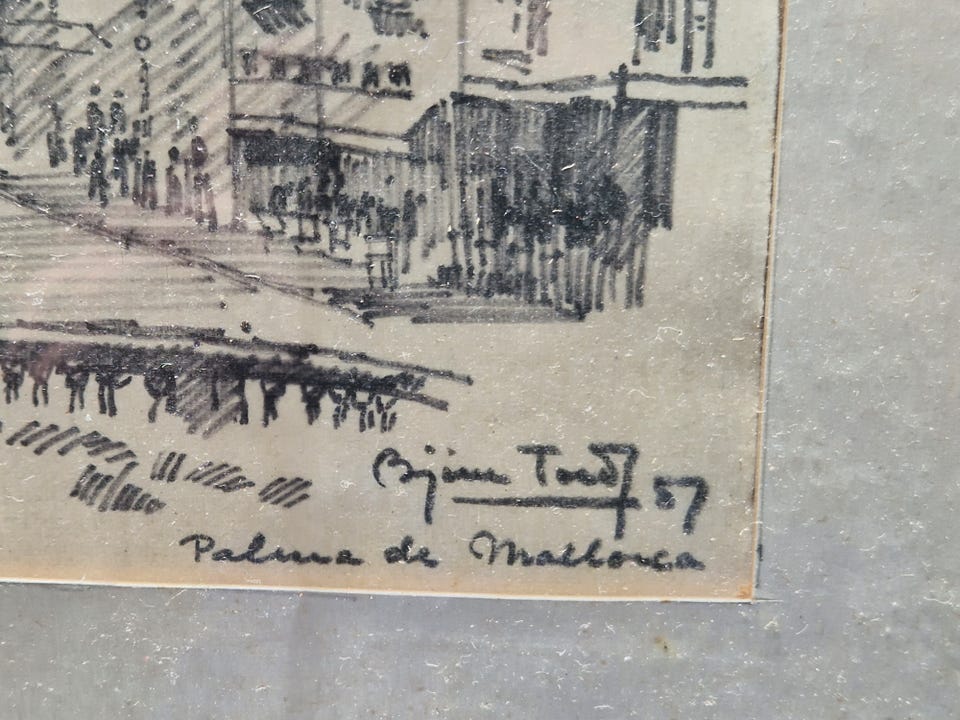 Björn 57
Palma de Mallorca